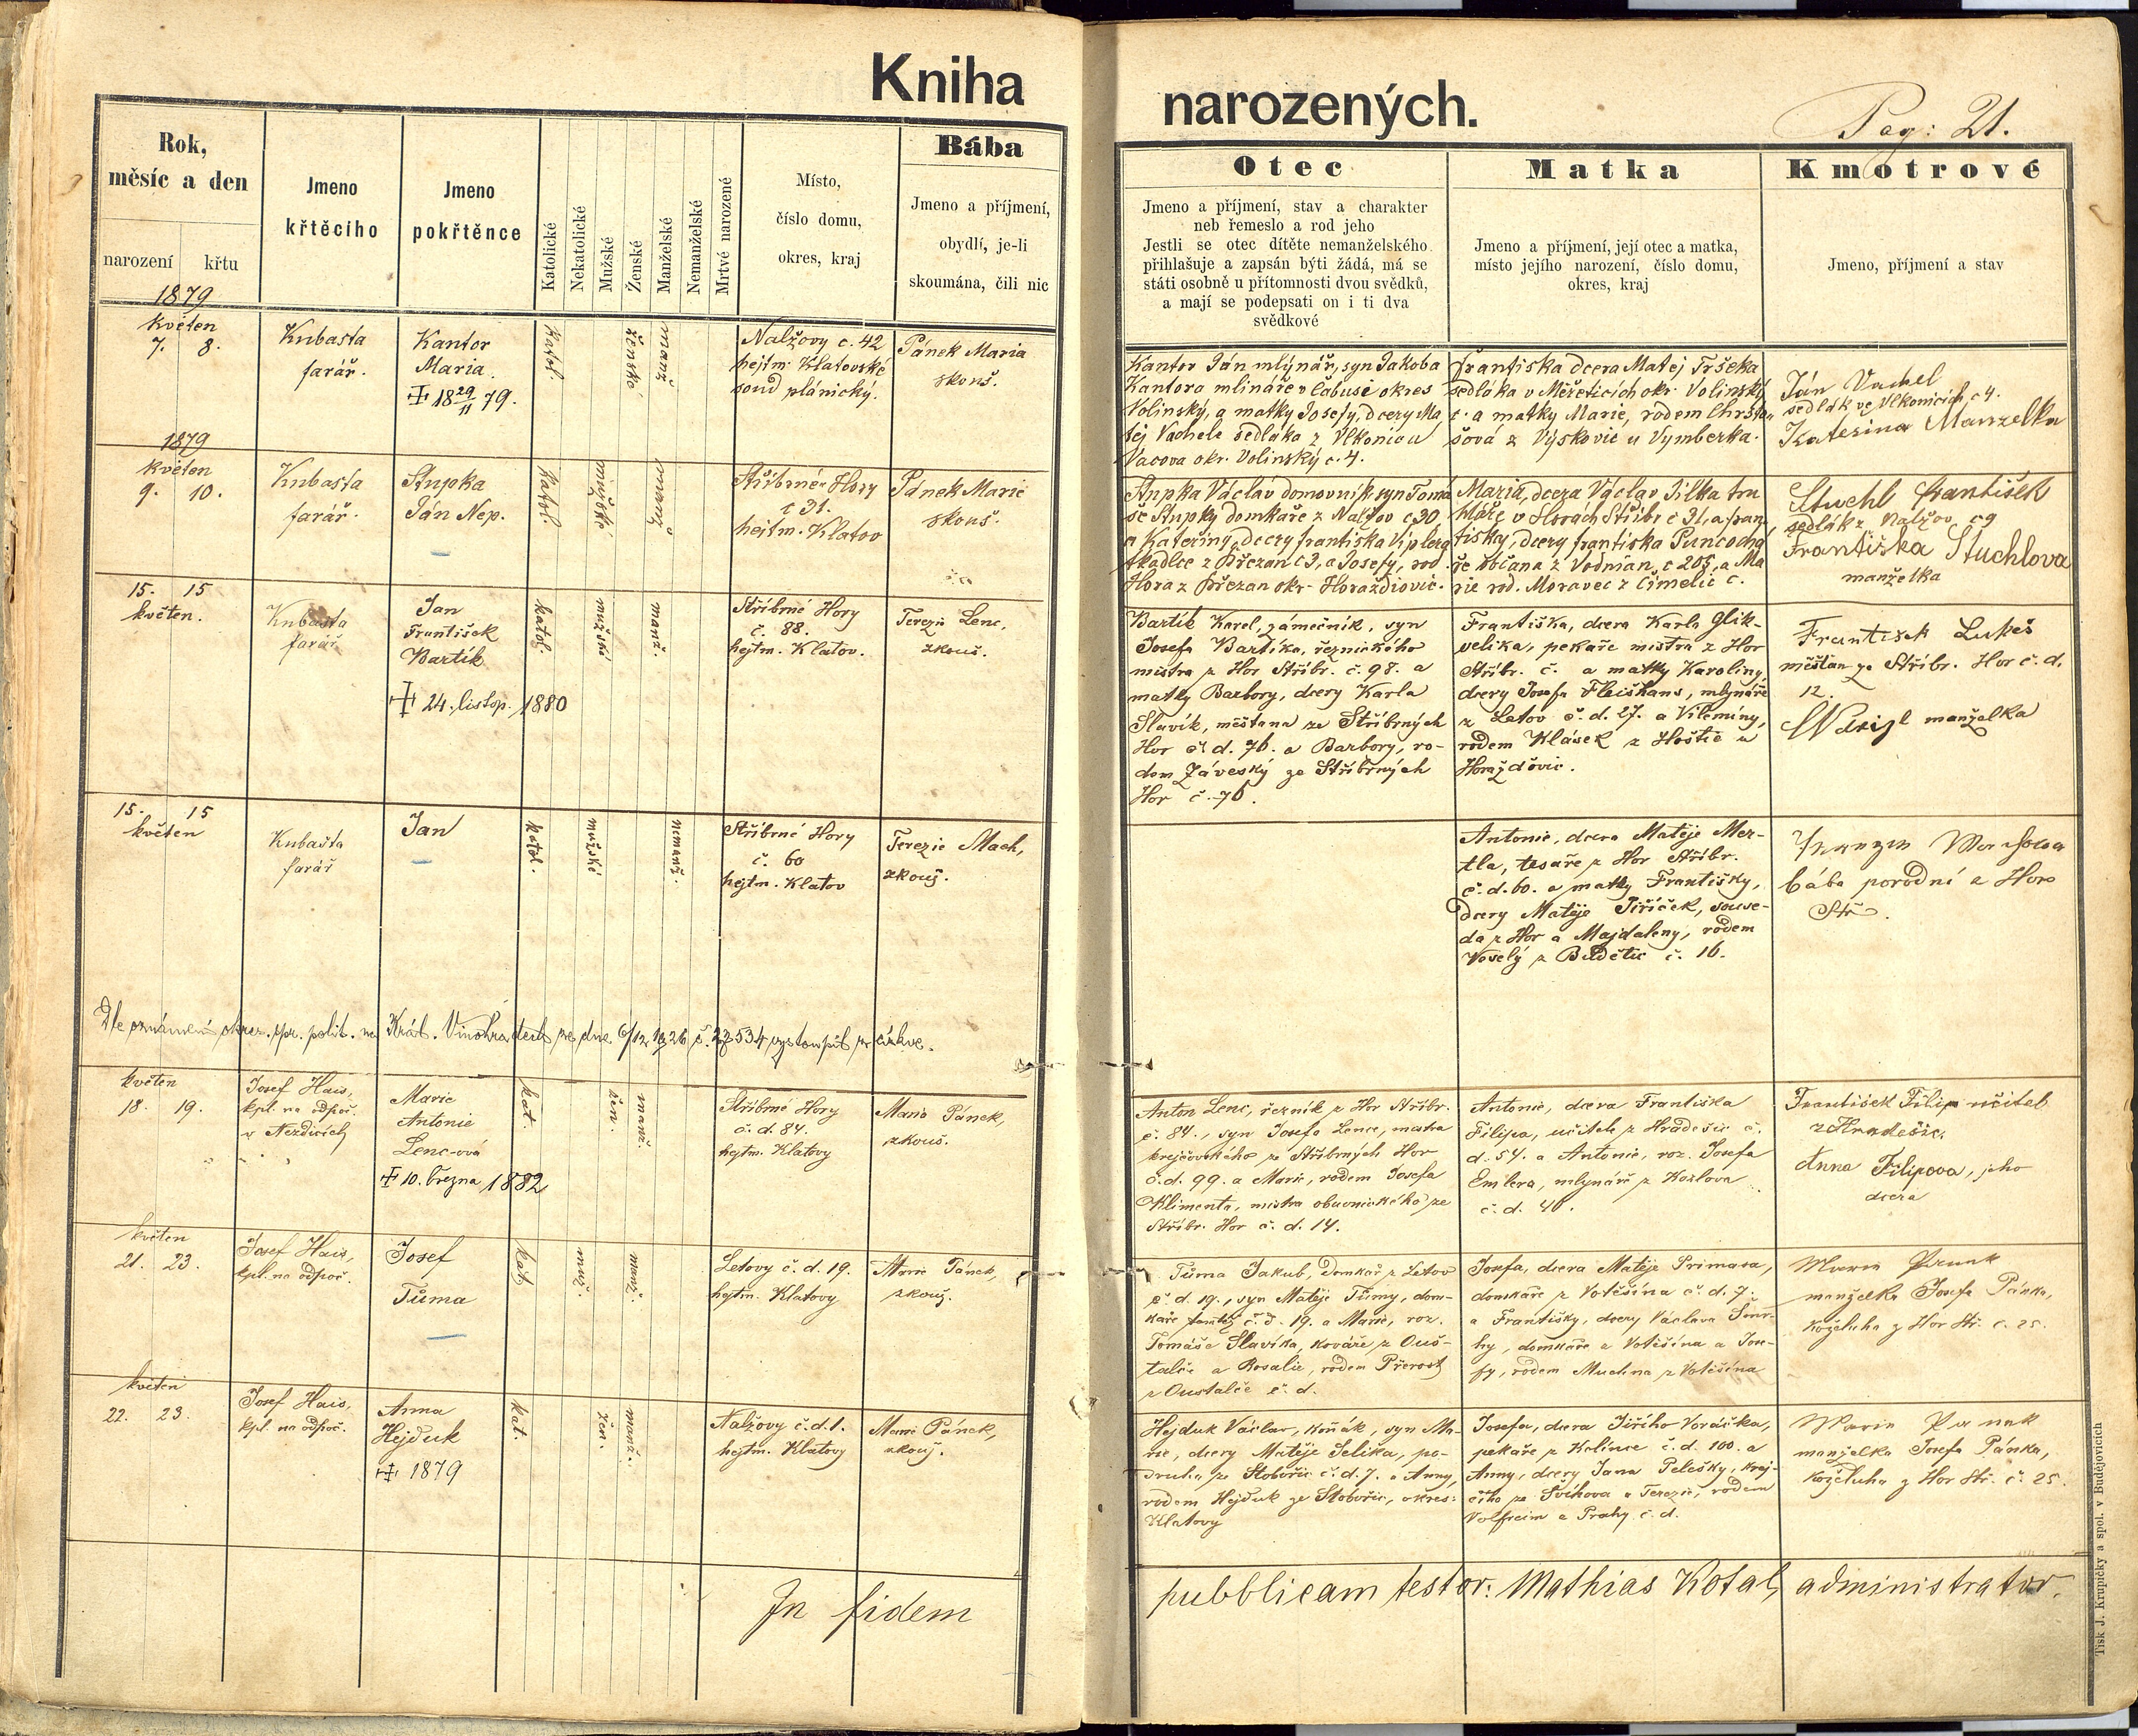 Kniha
narozených.
Pag: 21.
Rok,
měsíc a den
narození křtu
Jmeno
křtěcího
Jmeno
pokřtěnce
Katolické
Nekatolické
Mužské
Ženské
Manželské
Nemanželské
Mrtvé narozené
Místo,
číslo domu,
okres, kraj
Bába
Jmeno a příjmení,
obydlí, je-li
skoumána, čili nic
Otec
Jmeno a příjmení, stav a charakter
neb řemeslo a rod jeho
Jestli se otec dítěte nemanželského
přihlašuje a zapsán býti žádá, má se
státi osobně u přítomnosti dvou svědků,
a mají se podepsati on i ti dva
svědkové
Matka
Jmeno a příjmení, její otec a matka,
místo jejího narození, číslo domu,
okres, kraj
Kmotrové
Jmeno, příjmení a stav
1879
květen
7. 8.
Kubašta
farář.
Kantor
Maria.
18 29/11 79.
katol.
ženské
manž.
Nalžovy c. 42
hejtm. Klatovské
soud plánický.
Pánek Maria
skouš.
Kantor Ján mlýnář, syn Jakoba
Kantora mlináře v Čabusi okres
Volinský, a matky Josefy, dcery Ma
těj Vachele sedláka z Vlkonic u
Vacova okr. Volinský c. 4.
Františka dcera Matěj Tršeka
sedláka v Měřeticích okr. Volinský
c. a matky Marie, rodem Chrsťa„
šová z Výškovic u Vymberka.
Ján Vachel
sedlák ve Vlkonicích c 4.
Kateřina Manzelka
1879
květen
9. 10.
Kubašta
farář.
Stupka
Ján Nep.
katol.
mužské
manž.
Stříbrné Hory
c 31.
hejtm. Klatov
Pánek Marie
skouš.
Stupka Václav domovník syn Tomá
še Stupky domkaře z Nalžov c 30
a Kateřiny, dcery Františka
tkadlce z Břežan c 3, a Josefy, rod.
Hora z Břežan okr. Horaždiovic.
Maria, dcera Václav Jílka tru
hláře v Horách Stříbr. c 31, a Fran„
tišky, dcery Františka Puncochá
ře občana z Vodnian, c 205, a Ma
rie rod. Moravec z Čimelic c.
Stuchl František
sedlák z Nalžov c 9
Františka Stuchlova
manželka
15. 15
květen.
Kubašta
farář
Jan
František
Bartík
24. listop. 1880
katol.
mužské
manž.
Stříbrné Hory
č. 88.
hejtm. Klatov.
Terezie Lenc,
zkouš.
Bartík Karel, zámečník, syn
Josefa Bartíka, řeznického
mistra z Hor Stříbr. č. 98. a
matky Barbory, dcery Karla
Slavík, měšťana ze Stříbrných
Hor č. d. 76. a Barbory, ro-
dem Záveský ze Stříbrných
Hor č. 76.
Františka, dcera Karla Glik-
velika, pekaře mistra z Hor
Stříbr. č. a matky Karoliny,
dcery Josefa Fleišhans, mlynáře
z Letov č. d. 27. a Vilemíny,
rodem Klásek z Hoštic u
Horažďovic.
František Lukeš
měšťan ze Stříbr. Hor č. d.
12.
manželka
15. 15
květen
Kubašta
farář
Jan
katol.
mužské
nemanž.
Stříbrné Hory
č. 60
hejtm. Klatov
Terezie Mach,
zkouš.
Antonie, dcera Matěje Mer-
tla, tesaře z Hor Stříbr.
č. d. 60. a matky Františky,
dcery Matěje Jiříček, souse-
da z Hor a Majdaleny, rodem
Veselý z Budětic č. 16.
bába porodní z Hor
Stř.
Dle oznámení okres. spr. polit. na Král. Vinohradech ze dne 6/12 1926 č. 27534 vystoupil z církve.
květen
18. 19.
Josef Hais,
kpl. na odpoč.
v Nezdicích
Marie
Antonie
Lenc-ová
10. března 1882
kat.
žen.
manž.
Stříbrné Hory
č. d. 84.
hejtm. Klatovy
Marie Pánek,
zkouš.
Anton Lenc, řezník z Hor Stříbr.
č. 84., syn Josefa Lence, mistra
krejčovského ze Stříbrných Hor
č. d. 99. a Marie, rodem Josefa
Klimenta, mistra obuvnického ze
Stříbr. Hor č. d. 14.
Antonie, dcera Františka
Filipa, učitele z Hradešic č.
d. 54. a Antonie, roz. Josefa
Emlera, mlynáře z Kozlova
č. d. 40.
František Filip učitel
z Hradešic.
Anna Filipova, jeho
dcera
květen
21. 23.
Josef Hais,
kpl. na odpoč.
Josef
Tůma
kat.
muž.
manž.
Letovy č. d. 19.
hejtm. Klatovy
Marie Pánek,
zkouš.
Tůma Jakub, domkář z Letov
č. d. 19., syn Matěje Tůmy, dom-
káře tamtéž č. d. 19. a Marie, roz.
Tomáše Slavíka, kováře z Ouš-
talče a Rosalie, rodem Přerost
z Oustalče č. d.
Josefa, dcera Matěje Primasa,
domkáře z Votěšína č. d. 7.
a Františky, dcery Václava
hy, domkáře z Votěšína a Jose-
fy, rodem Muchna z Votěšína
Marie Panek
manželka Josefa Pánka,
koželuha z Hor Stř. č. 25.
květen
22. 23.
Josef Hais,
kpl. na odpoč.
Anna
Hejduk
1879
kat.
žen.
manž.
Nalžovy č. d. 1.
hejtm. Klatovy
Marie Pánek,
zkouš.
Hejduk Václav, koňák, syn Ma-
rie, dcery Matěje Jelíka, po-
druha ze Slobořic č. d. 7. a Anny,
rodem Hejduk ze Slobořic, okres:
Klatovy
Josefa, dcera Jiřího Voráčka,
pekaře z Kolince č. d. 100. a
Anny, dcery Jana Pelešky, krej-
čího ze Švihova a Terezie, rodem
Volfheim z Prahy č. d.
Marie Panek
manželka Josefa Pánka,
koželuha z Hor Stř. č. 25.
In fidem
pubblicam testor: Mathias Kotal, administrator.
Tisk J. Krupičky a spol. v Budějovicích